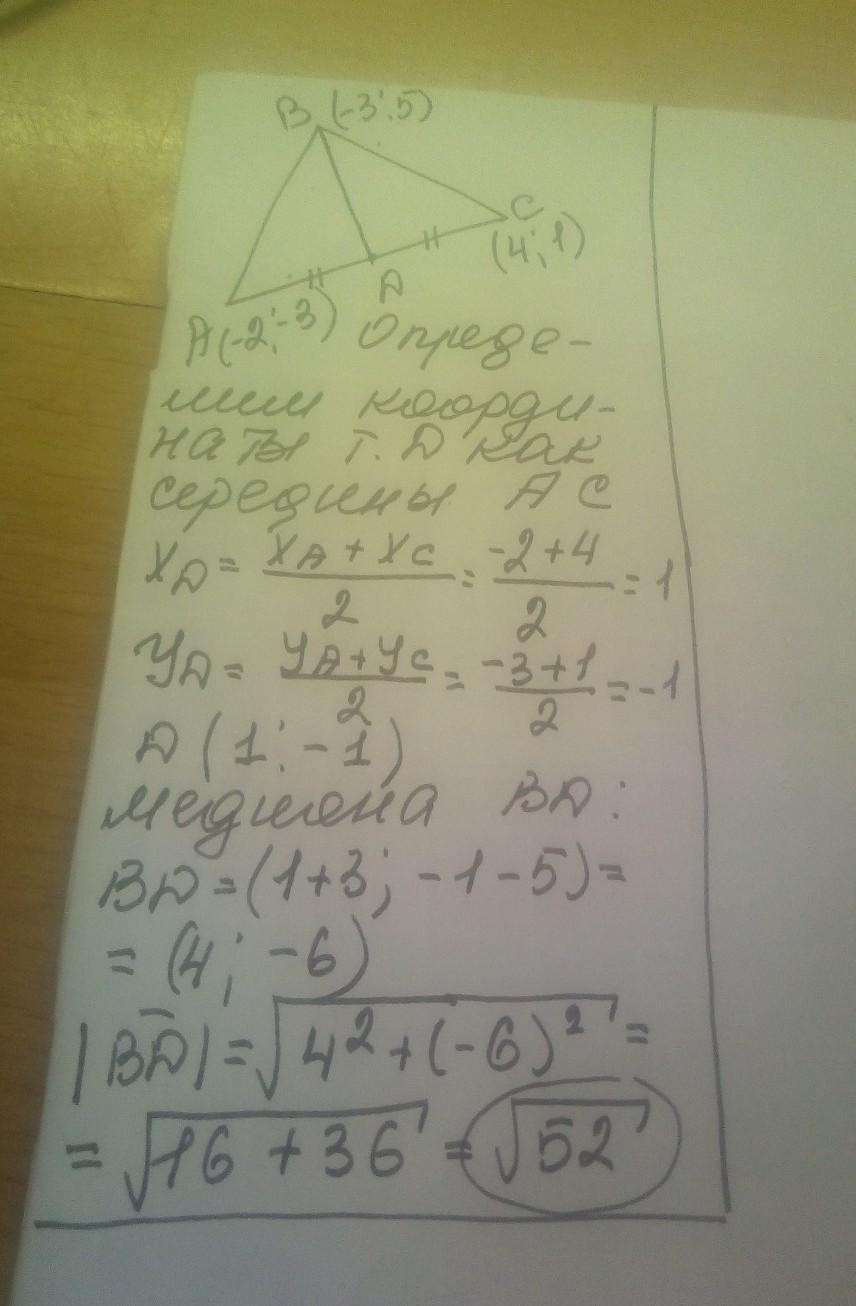 B (-3; 5)
C
(4; 1)
D
A(-2; -3) Опреде-
лим коорди-
наты т. D как
середины AC
X_D = (X_A + X_C)/2 = (-2+4)/2 = 1
У_D = (У_A + У_C)/2 = (-3+1)/2 = -1
D (1; -1)
медиана BD:
BD = (1+3; -1-5) =
= (4; -6)
|BD̅| = √(4² + (-6)²) =
= √(16 + 36) = √52